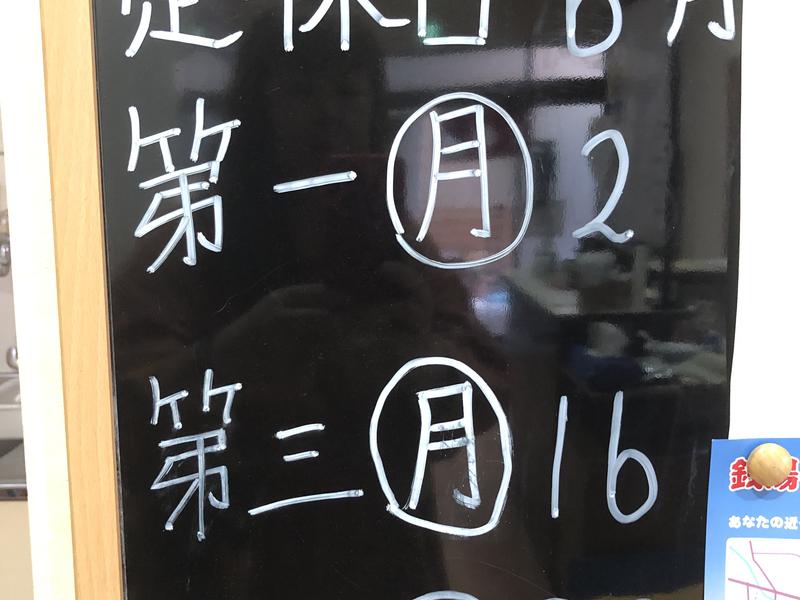 定休日 6月
第一 ㊊ 2
第三 ㊊ 16
銭湯
あなたの近